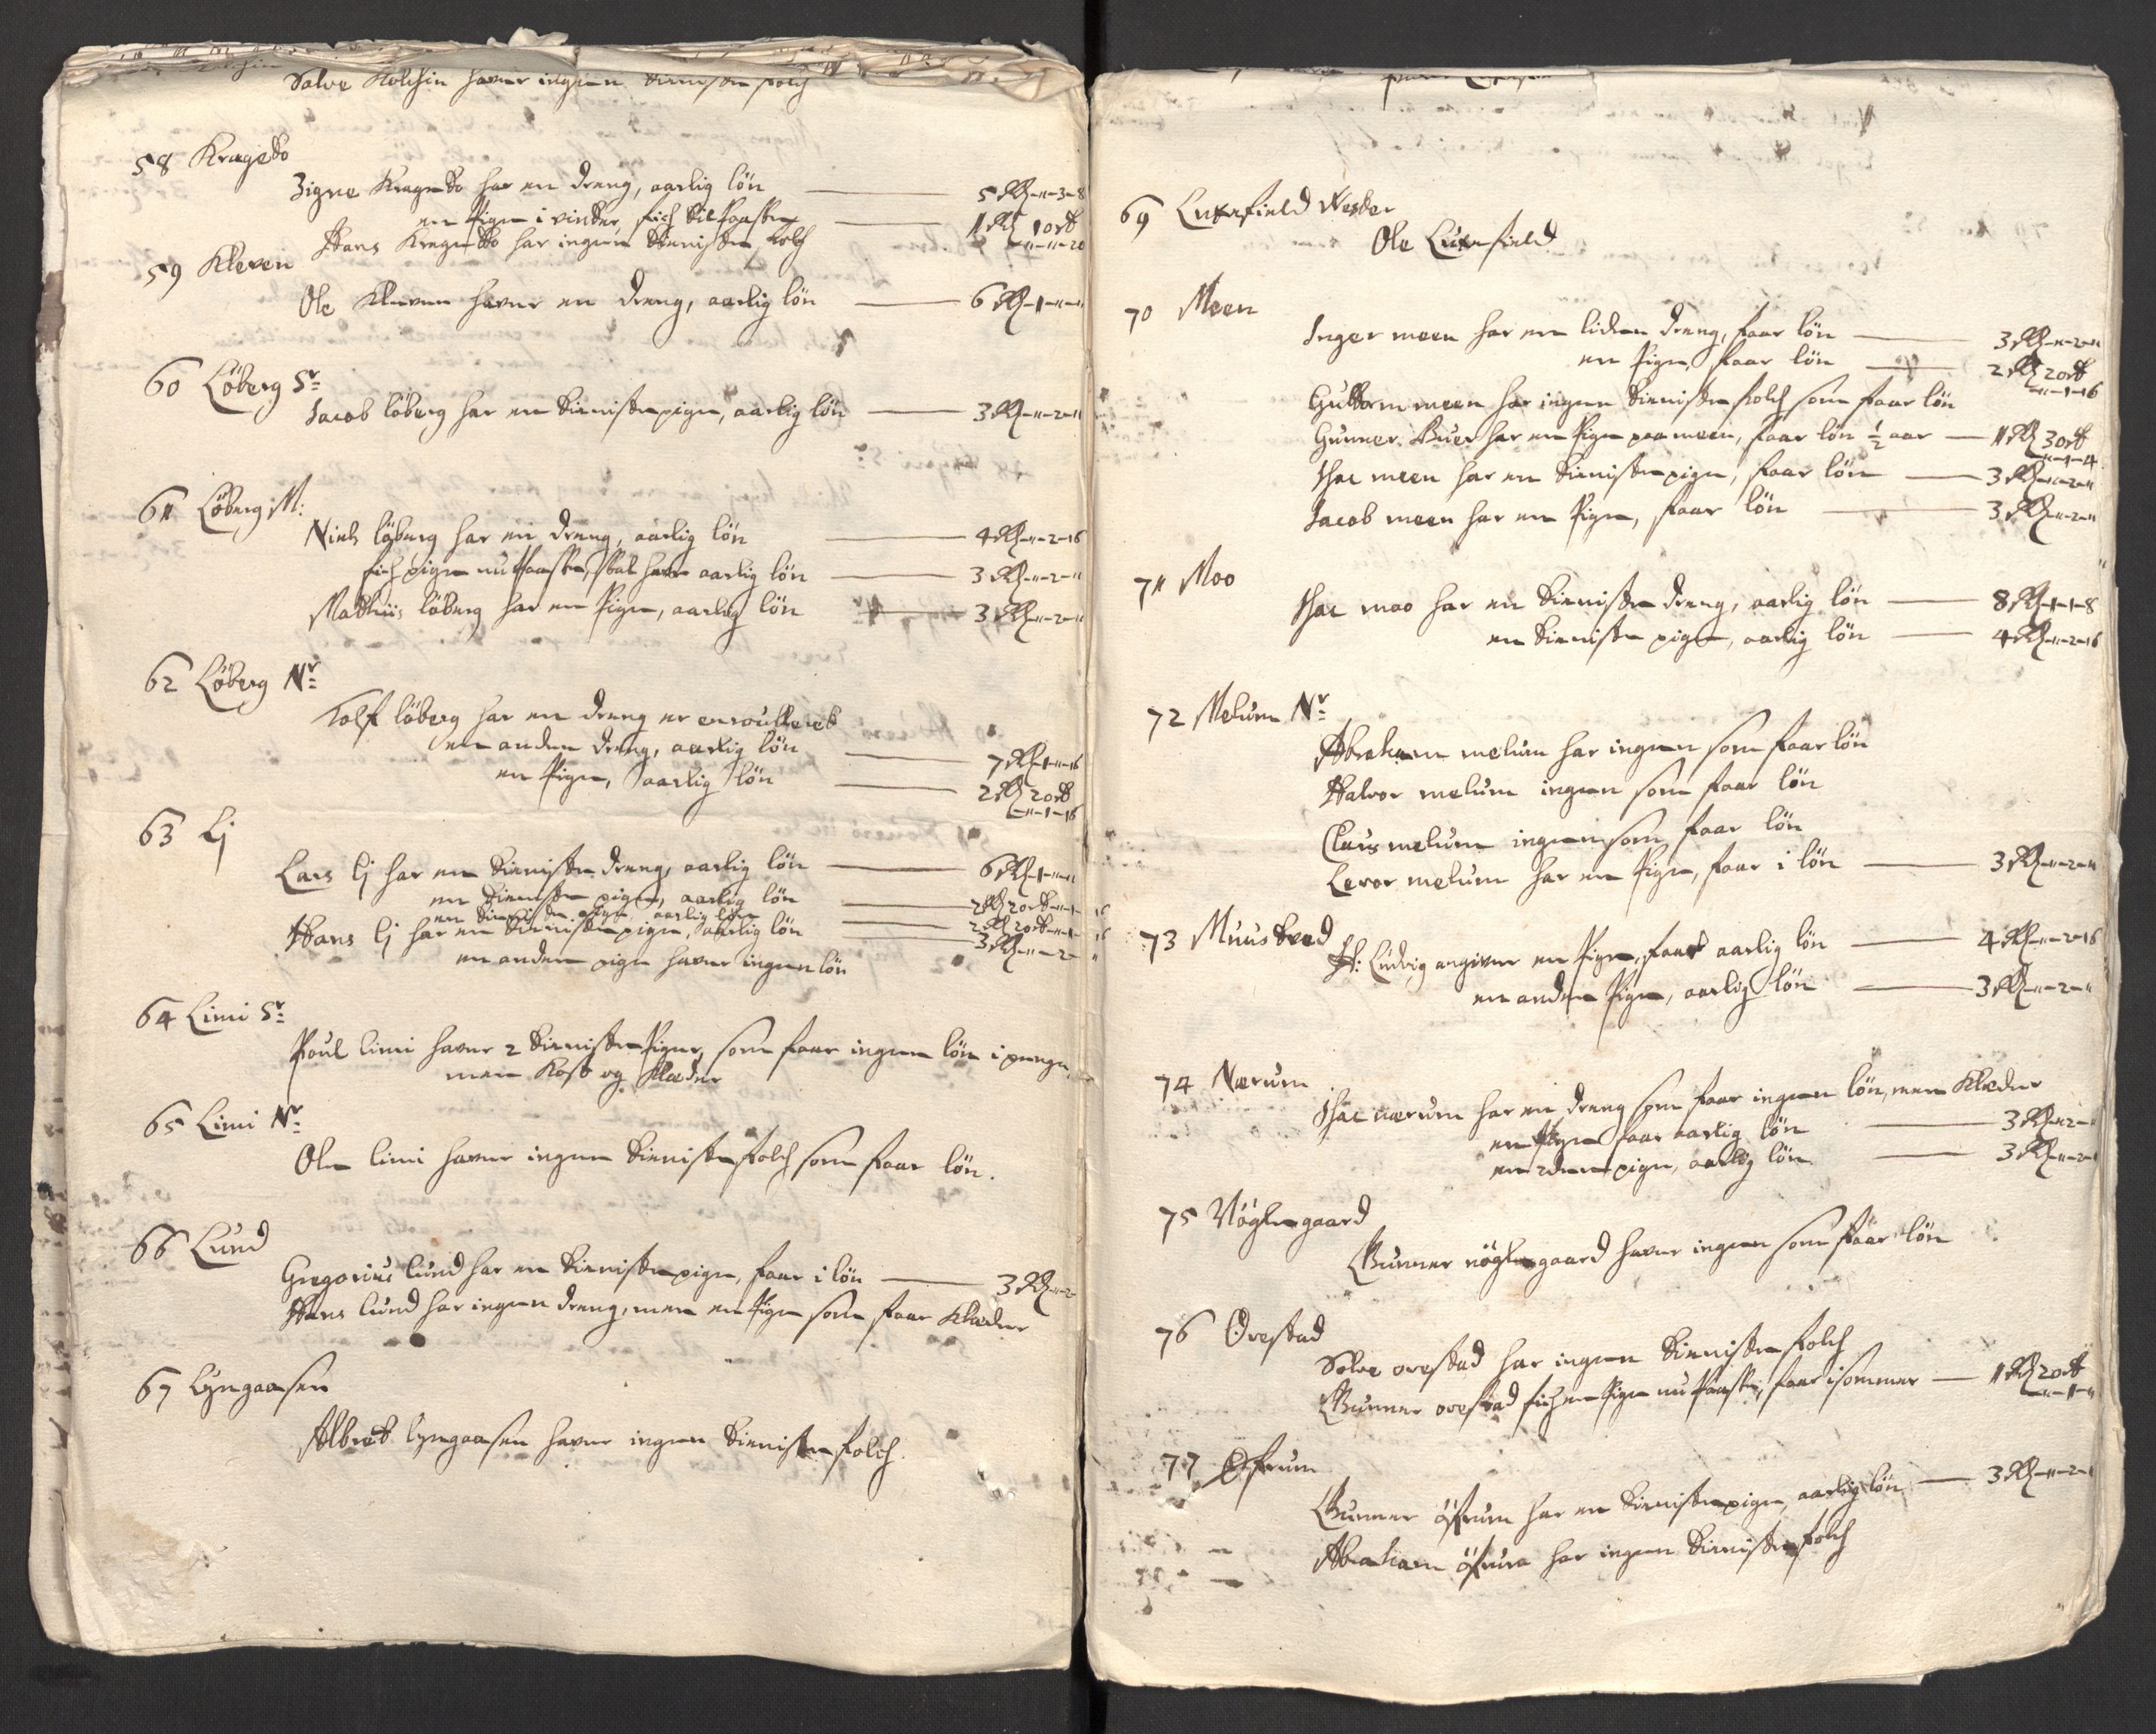 Salve Kolchin hafver ingen tienisten folch
58 Kragebo
Zigne Kragebo har en dreng, aarlig lön — 5 Rd - " - 3 - 8
en Pige i vinter, fich til Paaske — 1 Rd 1 ort
Hans Kragebo har ingen tieniste folch - " - " - 20
59 Kleven
Ole Kleven hafver en dreng, aarlig lön — 6 Rd - 1 - " - "
60 Löberg Sr
Jacob löberg har en tienistepige, aarlig lön — 3 Rd - " - 2 - "
61 Löberg M:
Niels löberg har en dreng, aarlig lön — 4 Rd - " - 2 - 16
fich pige nu Paaske, skal have aarlig lön — 3 Rd - " - 2 - "
Mathiis löberg har en Pige, aarlig lön — 3 Rd - " - 2 - "
62 Löberg Nr
Tolf löberg har en dreng er enroulleret
en anden dreng, aarlig lön — 7 Rd - 1 - " - 16
en Pige, aarlig lön — 2 Rd 2 ort
- " - 1 - 16
63 Lj
Lars lj har en tieniste dreng, aarlig lön — 6 Rd - 1 - " - "
en tieniste pige, aarlig lön — 2 Rd 2 ort - " - 1 - 16
en tieniste pige, aarlig lön — 2 Rd 2 ort - " - 1 - 16
Hans lj har en tienistepige, aarlig lön — 3 Rd - " - 2 - "
en anden pige hafver ingen lön
64 Limi Sr
Poul limi hafver 2 tieniste Piger, som faar ingen lön i penge,
men Kost og Klæder
65 Limi Nr
Ole limi hafver ingen tieniste folch som faar lön.
66 Lund
Gregorius lund har en tienistepige, faar i lön — 3 Rd - " - 2
Hans lund har ingen dreng, men en Pige som faar Klæder
67 Lyngaasen
Albret lyngaasen hafver ingen tieniste folch.
69 Luxefield Wester
Ole Luxefield
70 Meen
Inger meen har en liden dreng, faar lön — 3 Rd - " - 2 - "
en Pige, faar lön — 2 Rd 2 ort
- " - 1 - 16
Guttorm meen har ingen tieniste folch som faar lön
Gunner Buer har en Pige paa meen, faar lön ½ aar — 1 Rd 3 ort
- " - 1 - 4
Isac meen har en tienistepige, faar lön — 3 Rd - " - 2 - "
Jacob meen har en Pige, faar lön — 3 Rd - " - 2 - "
71 Moo
Isac moo har en tieniste dreng, aarlig lön — 8 Rd - 1 - 1 - 8
en tieniste pige, aarlig lön — 4 Rd - " - 2 - 16
72 Melum Nr
Abraham melum har ingen som faar lön
Halvor melum ingen som faar lön
Claus melum ingen som faar lön
Levor melum har en Pige, faar i lön — 3 Rd - " - 2 - "
73 Muustved
H: Ludvig angiver en Pige, faar aarlig lön — 4 Rd - " - 2 - 16
en anden Pige, aarlig lön — 3 Rd - " - 2 - "
74 Nærum
Isac nærum har en dreng som faar ingen lön, men Klæder
en Pige faar aarlig lön — 3 Rd - " - 2 - "
en 2den pige, aarlig lön — 3 Rd - " - 2 - "
75 Nöglegaard
Gunner nöglegaard hafver ingen som faar lön
76 Orestad
Solve orestad har ingen tieniste folch
Gunner orestad fich en Pige nu Paaske, faar i sommer — 1 Rd 2 ort
- " - 1 - "
77 Øfrum
Gunner öfrum har en tienistepige, aarlig lön — 3 Rd - " - 2 - "
Abraham öfrum har ingen tieniste folch